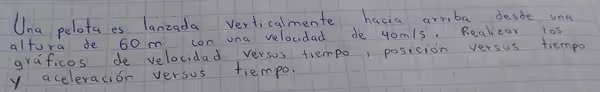 Una pelota es lanzada verticalmente hacia arriba desde una
altura de 60 m con una velocidad de 40m/s. Realizar los
gráficos de velocidad versus tiempo, posición versus tiempo
y aceleración versus tiempo.